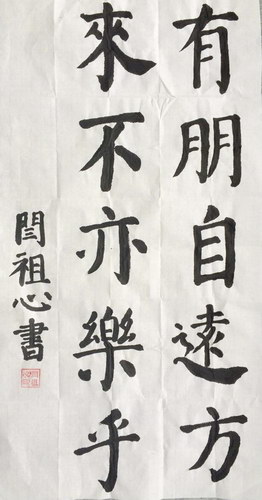 有朋自遠方
來不亦樂乎
閆祖心書